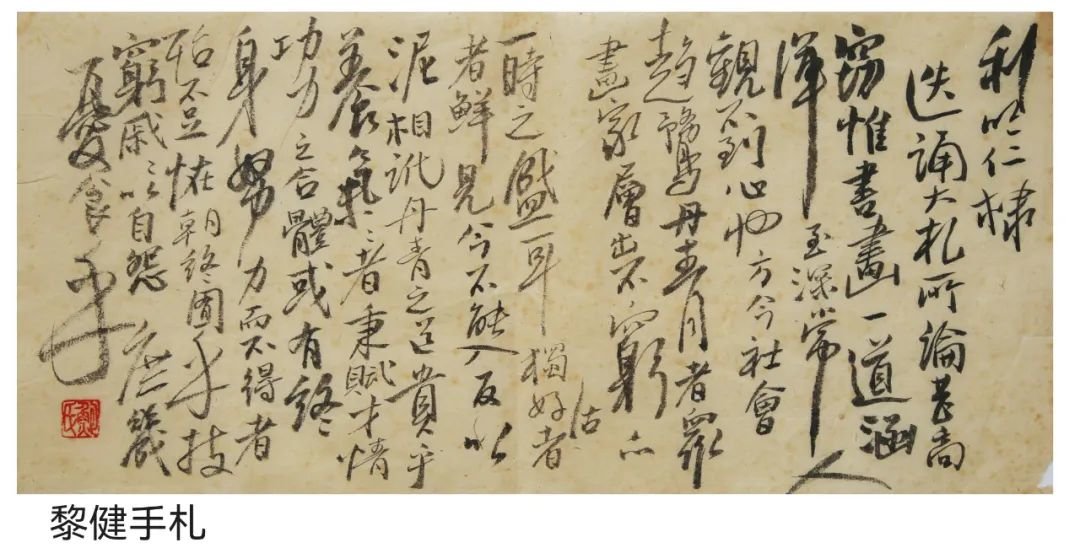 利仁棣
迭誦大札所論甚高
竊惟書畫一道涵
渾至深常人
觀不到心也方今社會
趨鶩丹青者眾
畫家層出不窮亦
一時之盛耳獨好者
者鮮見今不能人反以
泥相訛丹青之道貴乎
養氣氣者秉賦才情
功力之合體或有終
身努力而不得者
不足怪朝終手技
窮戚戚以自怨庶幾
食
黎健手札